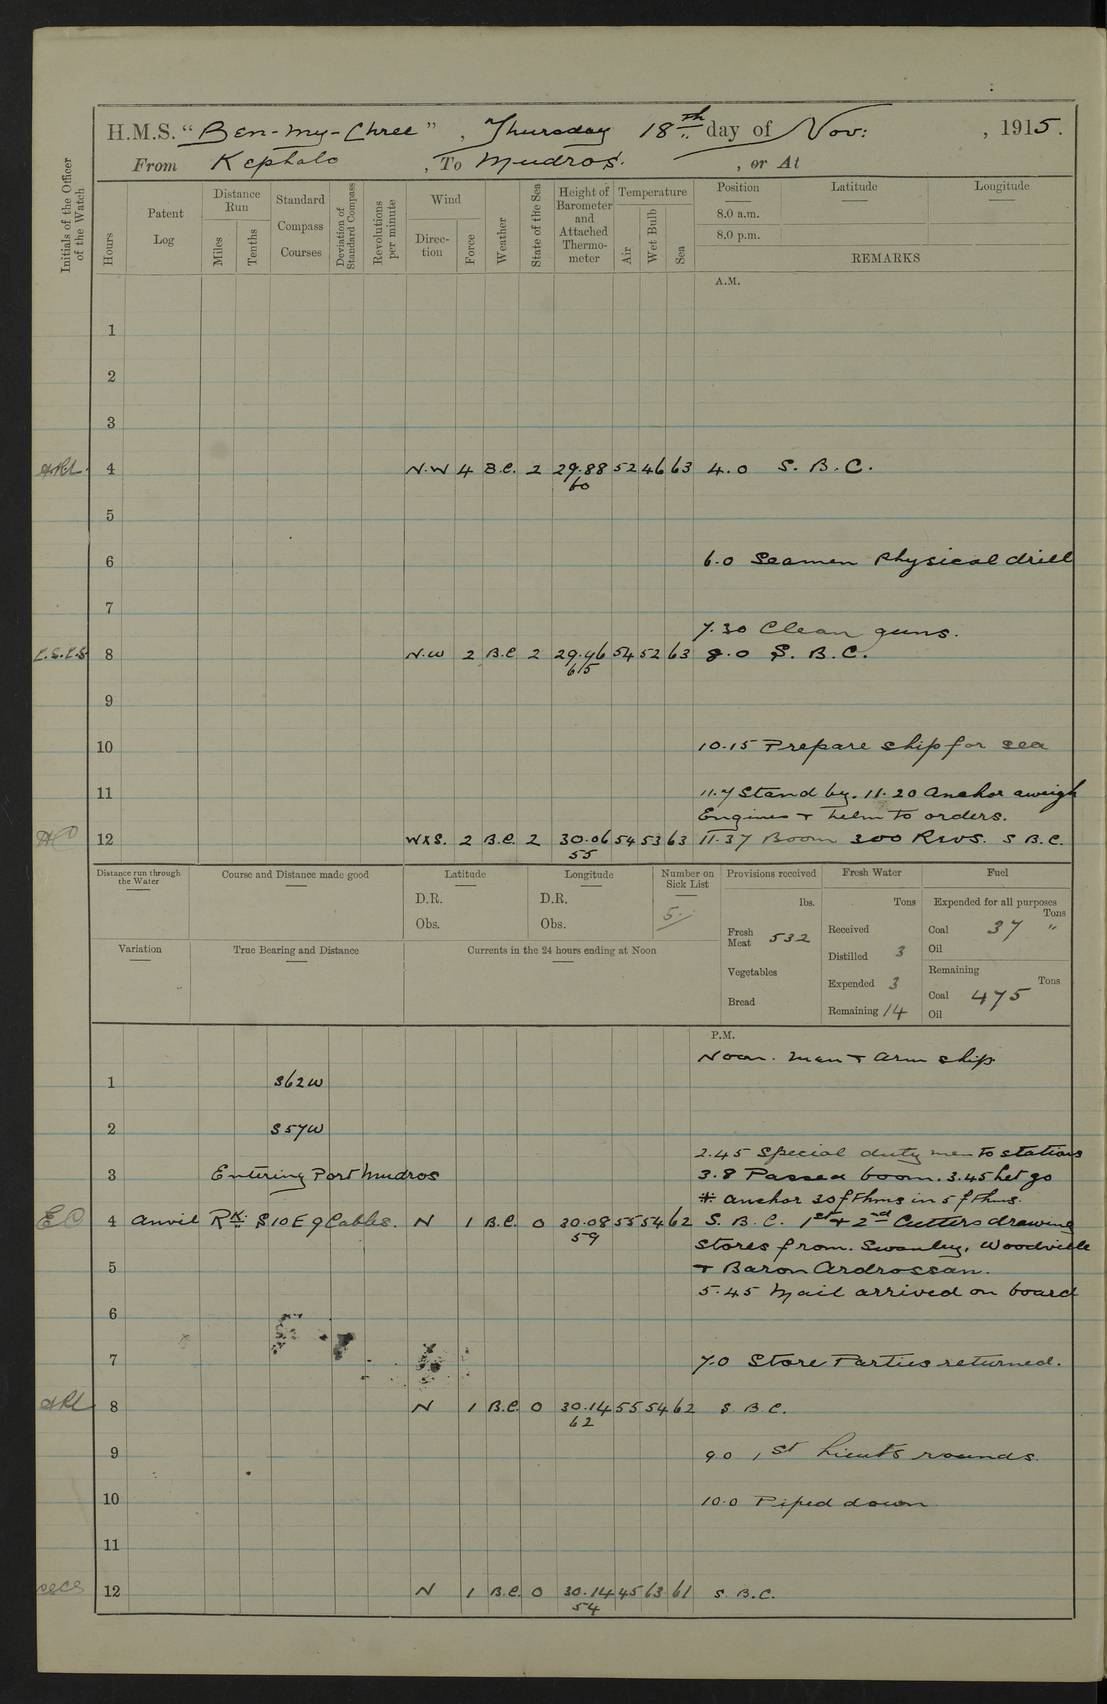 H.M.S. “Ben-my-Chree”, Thursday 18th day of Nov:, 1915.
From Kephalo, To Mudros., or At
Initials of the Officer of the Watch
Hours
Patent Log
Distance Run
Miles
Tenths
Standard Compass Courses
Deviation of Standard Compass
Revolutions per minute
Wind
Direction
Force
Weather
State of the Sea
Height of Barometer and Attached Thermometer
Temperature
Air
Wet Bulb
Sea
Position
8.0 a.m.
8.0 p.m.
Latitude
Longitude
REMARKS
A.M.
1
2
3
4 N.W 4 B.C. 2 29.88 52 46 63 4.0 S. B. C.
60
5
6 6.0 Seamen Physical drill
7
7.30 Clean guns.
E.S.E.S. 8 N.W 2 B.C 2 29.96 54 52 63 8.0 S. B. C.
615
9
10 10.15 Prepare ship for sea
11 11.7 Stand by. 11.20 Anchor aweigh
Engines + helm to orders.
12 WXS. 2 B.C. 2 30.06 54 53 63 11.37 Boom 300 Revs. S B.C.
55
Distance run through the Water
Course and Distance made good
Latitude
D.R.
Obs.
Longitude
D.R.
Obs.
Number on Sick List
5
Provisions received
lbs.
Fresh Meat 532
Vegetables
Bread
Fresh Water
Tons
Received
Distilled 3
Expended 3
Remaining 14
Fuel
Expended for all purposes
Tons
Coal 37 "
Oil
Remaining
Tons
Coal 475
Oil
Variation
True Bearing and Distance
Currents in the 24 hours ending at Noon
P.M.
Noon. Man + arm ship
1 S62W
2 S57W
2.45 Special duty men to stations
3 Entering Port Mudros 3.8 Passed boom. 3.45 Let go
* anchor 30 fthms in 5 fthms.
4 Anvil Rk. S10E 9 Cables. N 1 B.C. 0 30.08 55 54 62 S. B. C. 1st + 2nd Cutters drawing
59
stores from. Swanley, Woodville
5 + Baron Ardrossan.
5.45 Mail arrived on board
6
7 7.0 Store Parties returned.
8 N 1 B.C. 0 30.14 55 54 62 S. B.C.
62
9 9.0 1st Lieuts rounds.
10 10.0 Piped down
11
12 N 1 B.C. 0 30.14 45 63 61 S. B.C.
54